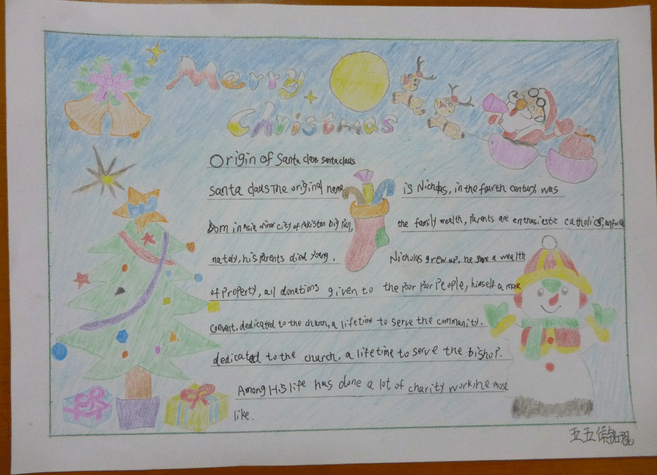 Merry
Christmas
Origin of Santa claus santaclaus
santa claus The original name is Nicholas, in the fourth century was
Born in Asia minor city of big the family wealth, parents are enthusiastic catholics,
nately, his parents died young. Nicholas grew up, he gave a wealth
of property, all donations given to the poor poor People, himself a
convent, dedicated to the church, a lifetime to serve the community.
dedicated to the church, a lifetime to serve the bishop.
Among His life has done a lot of charity work, he most
like.
五五